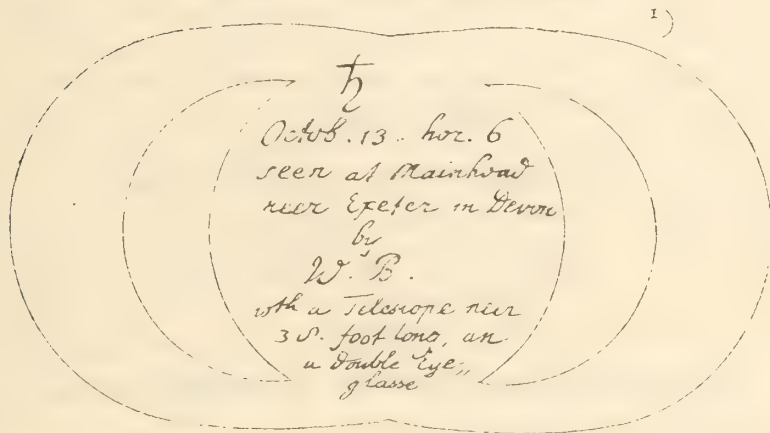 1)
♄
Octob. 13. hor. 6
seen at Mainhead
neer Exeter in Devon
by
W. B.
wth a Telescope neer
38. foot long, an
a double Eye,,
glasse